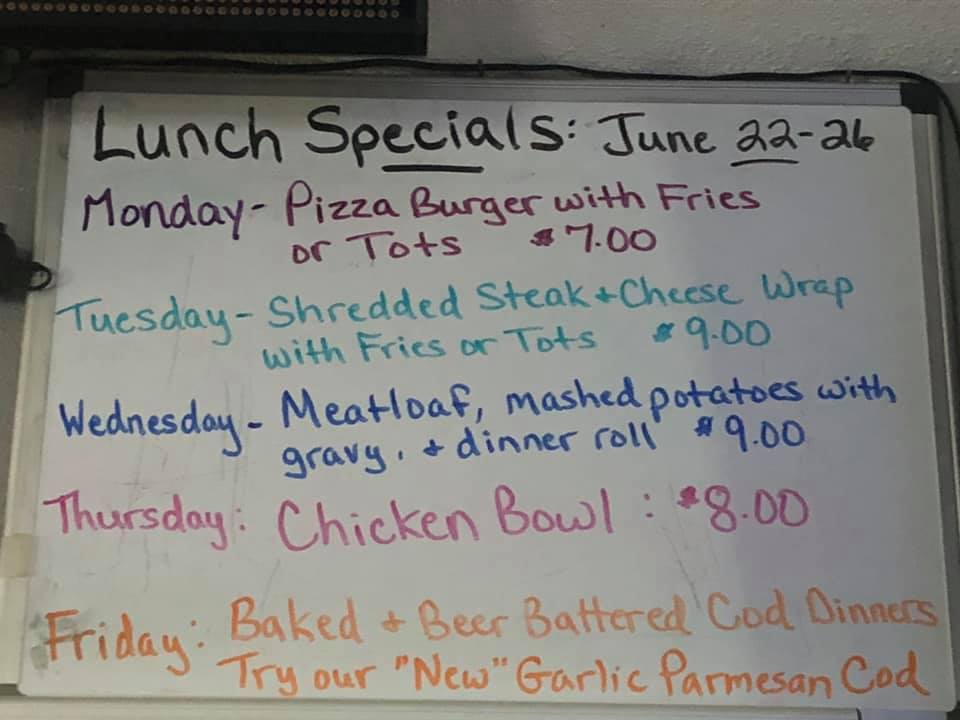 Lunch Specials: June 22-26
Monday- Pizza Burger with Fries
or Tots $7.00
Tuesday- Shredded Steak + Cheese Wrap
with Fries or Tots $9.00
Wednesday- Meatloaf, mashed potatoes with
gravy, + dinner roll $9.00
Thursday: Chicken Bowl : $8.00
Friday: Baked + Beer Battered Cod Dinners
Try our "New" Garlic Parmesan Cod